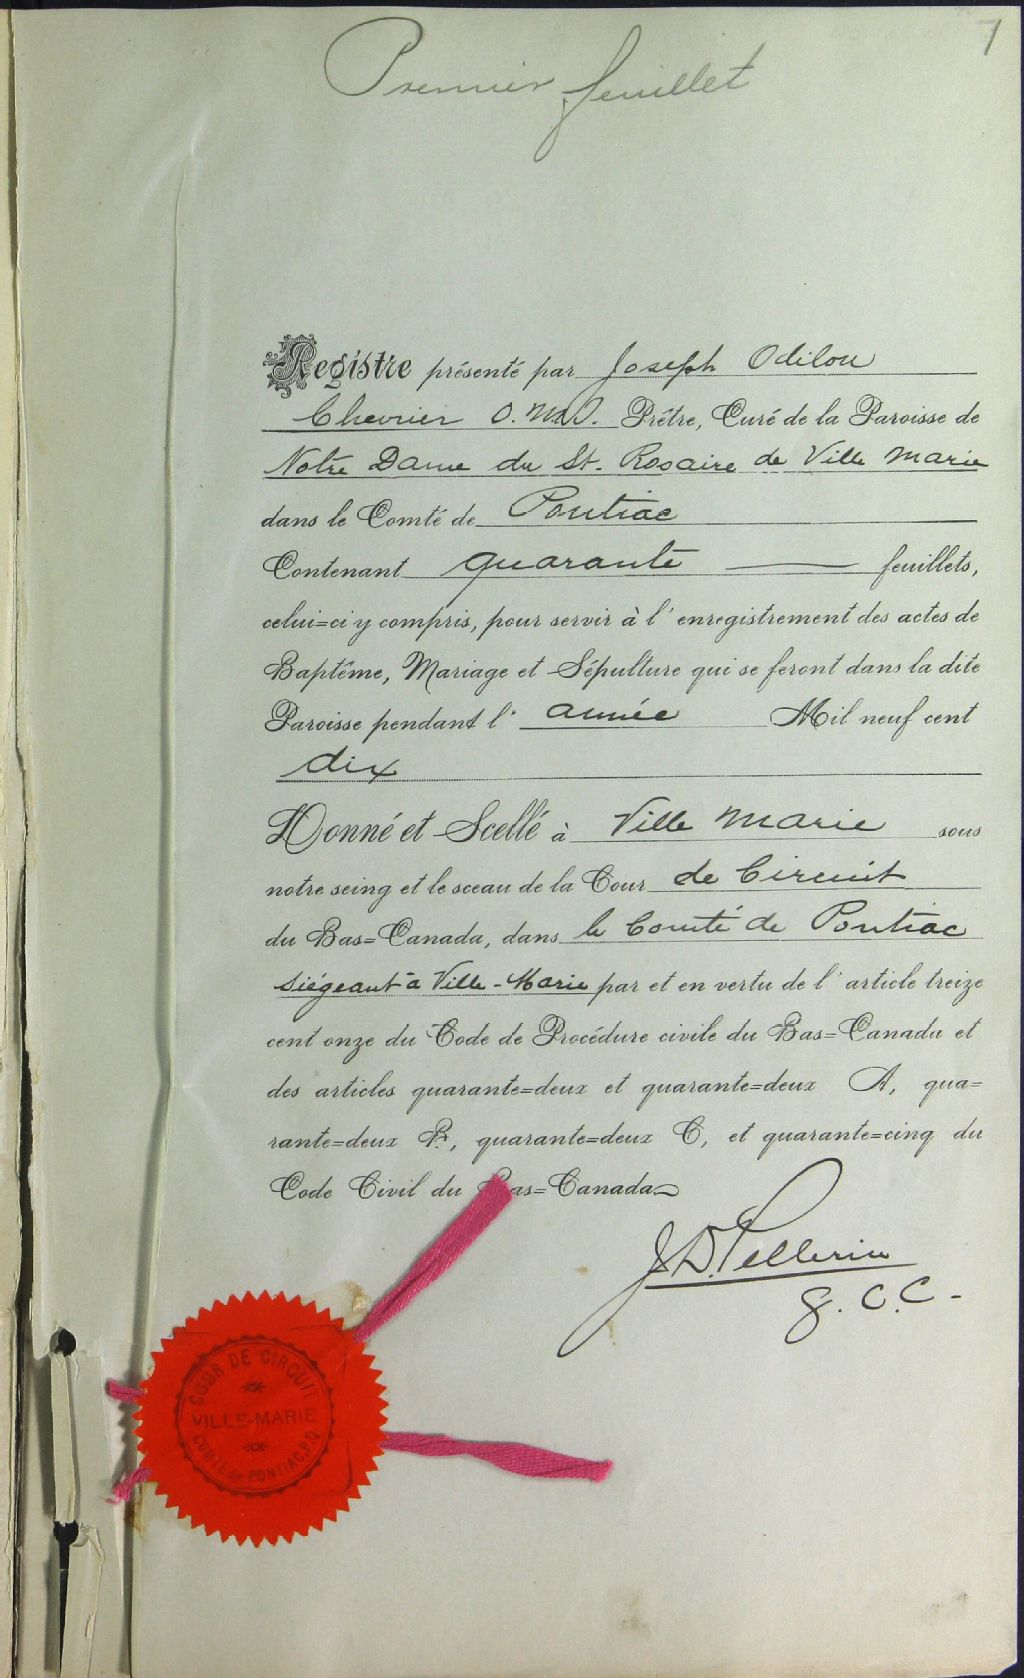 1
Premier feuillet
Registre présenté par Joseph Odilon
Chevrier O.M.I. Prêtre, Curé de la Paroisse de
Notre Dame du St. Rosaire de Ville Marie
dans le Comté de Pontiac
Contenant quarante — feuillets,
celui=ci y compris, pour servir à l'enregistrement des actes de
Baptême, Mariage et Sépulture qui se feront dans la dite
Paroisse pendant l'année Mil neuf cent
dix
Donné et Scellé à Ville Marie sous
notre seing et le sceau de la Cour de Circuit
du Bas=Canada, dans le Comté de Pontiac
siégeant à Ville-Marie par et en vertu de l'article treize
cent onze du Code de Procédure civile du Bas=Canada et
des articles quarante=deux et quarante=deux A, qua=
rante=deux B, quarante=deux C, et quarante=cinq du
Code Civil du Bas=Canada
J. D. Pellerin
G. C. C.
COUR DE CIRCUIT
VILLE-MARIE
COMTÉ de PONTIAC, P.Q.